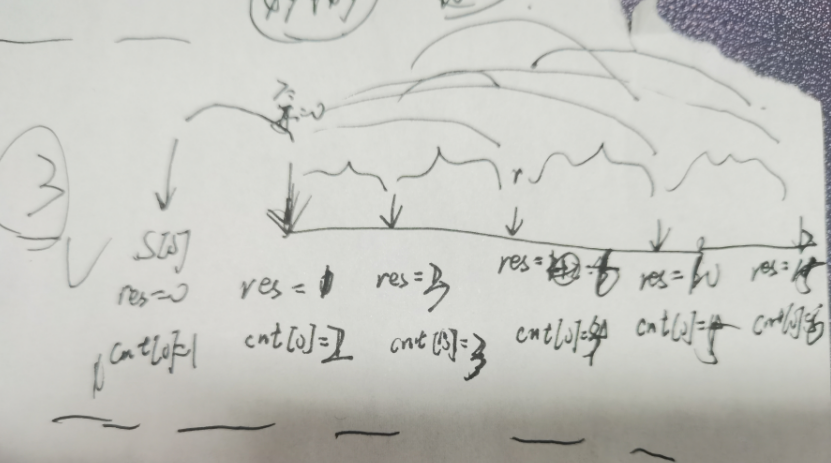 =0
3
r
S[0]
res=0
cnt[0]=1
res = 1
cnt[0]=2
res=3
cnt[0]=3
res=6
cnt[0]=4
res=10
cnt[0]=5
res=15
cnt[0]=6